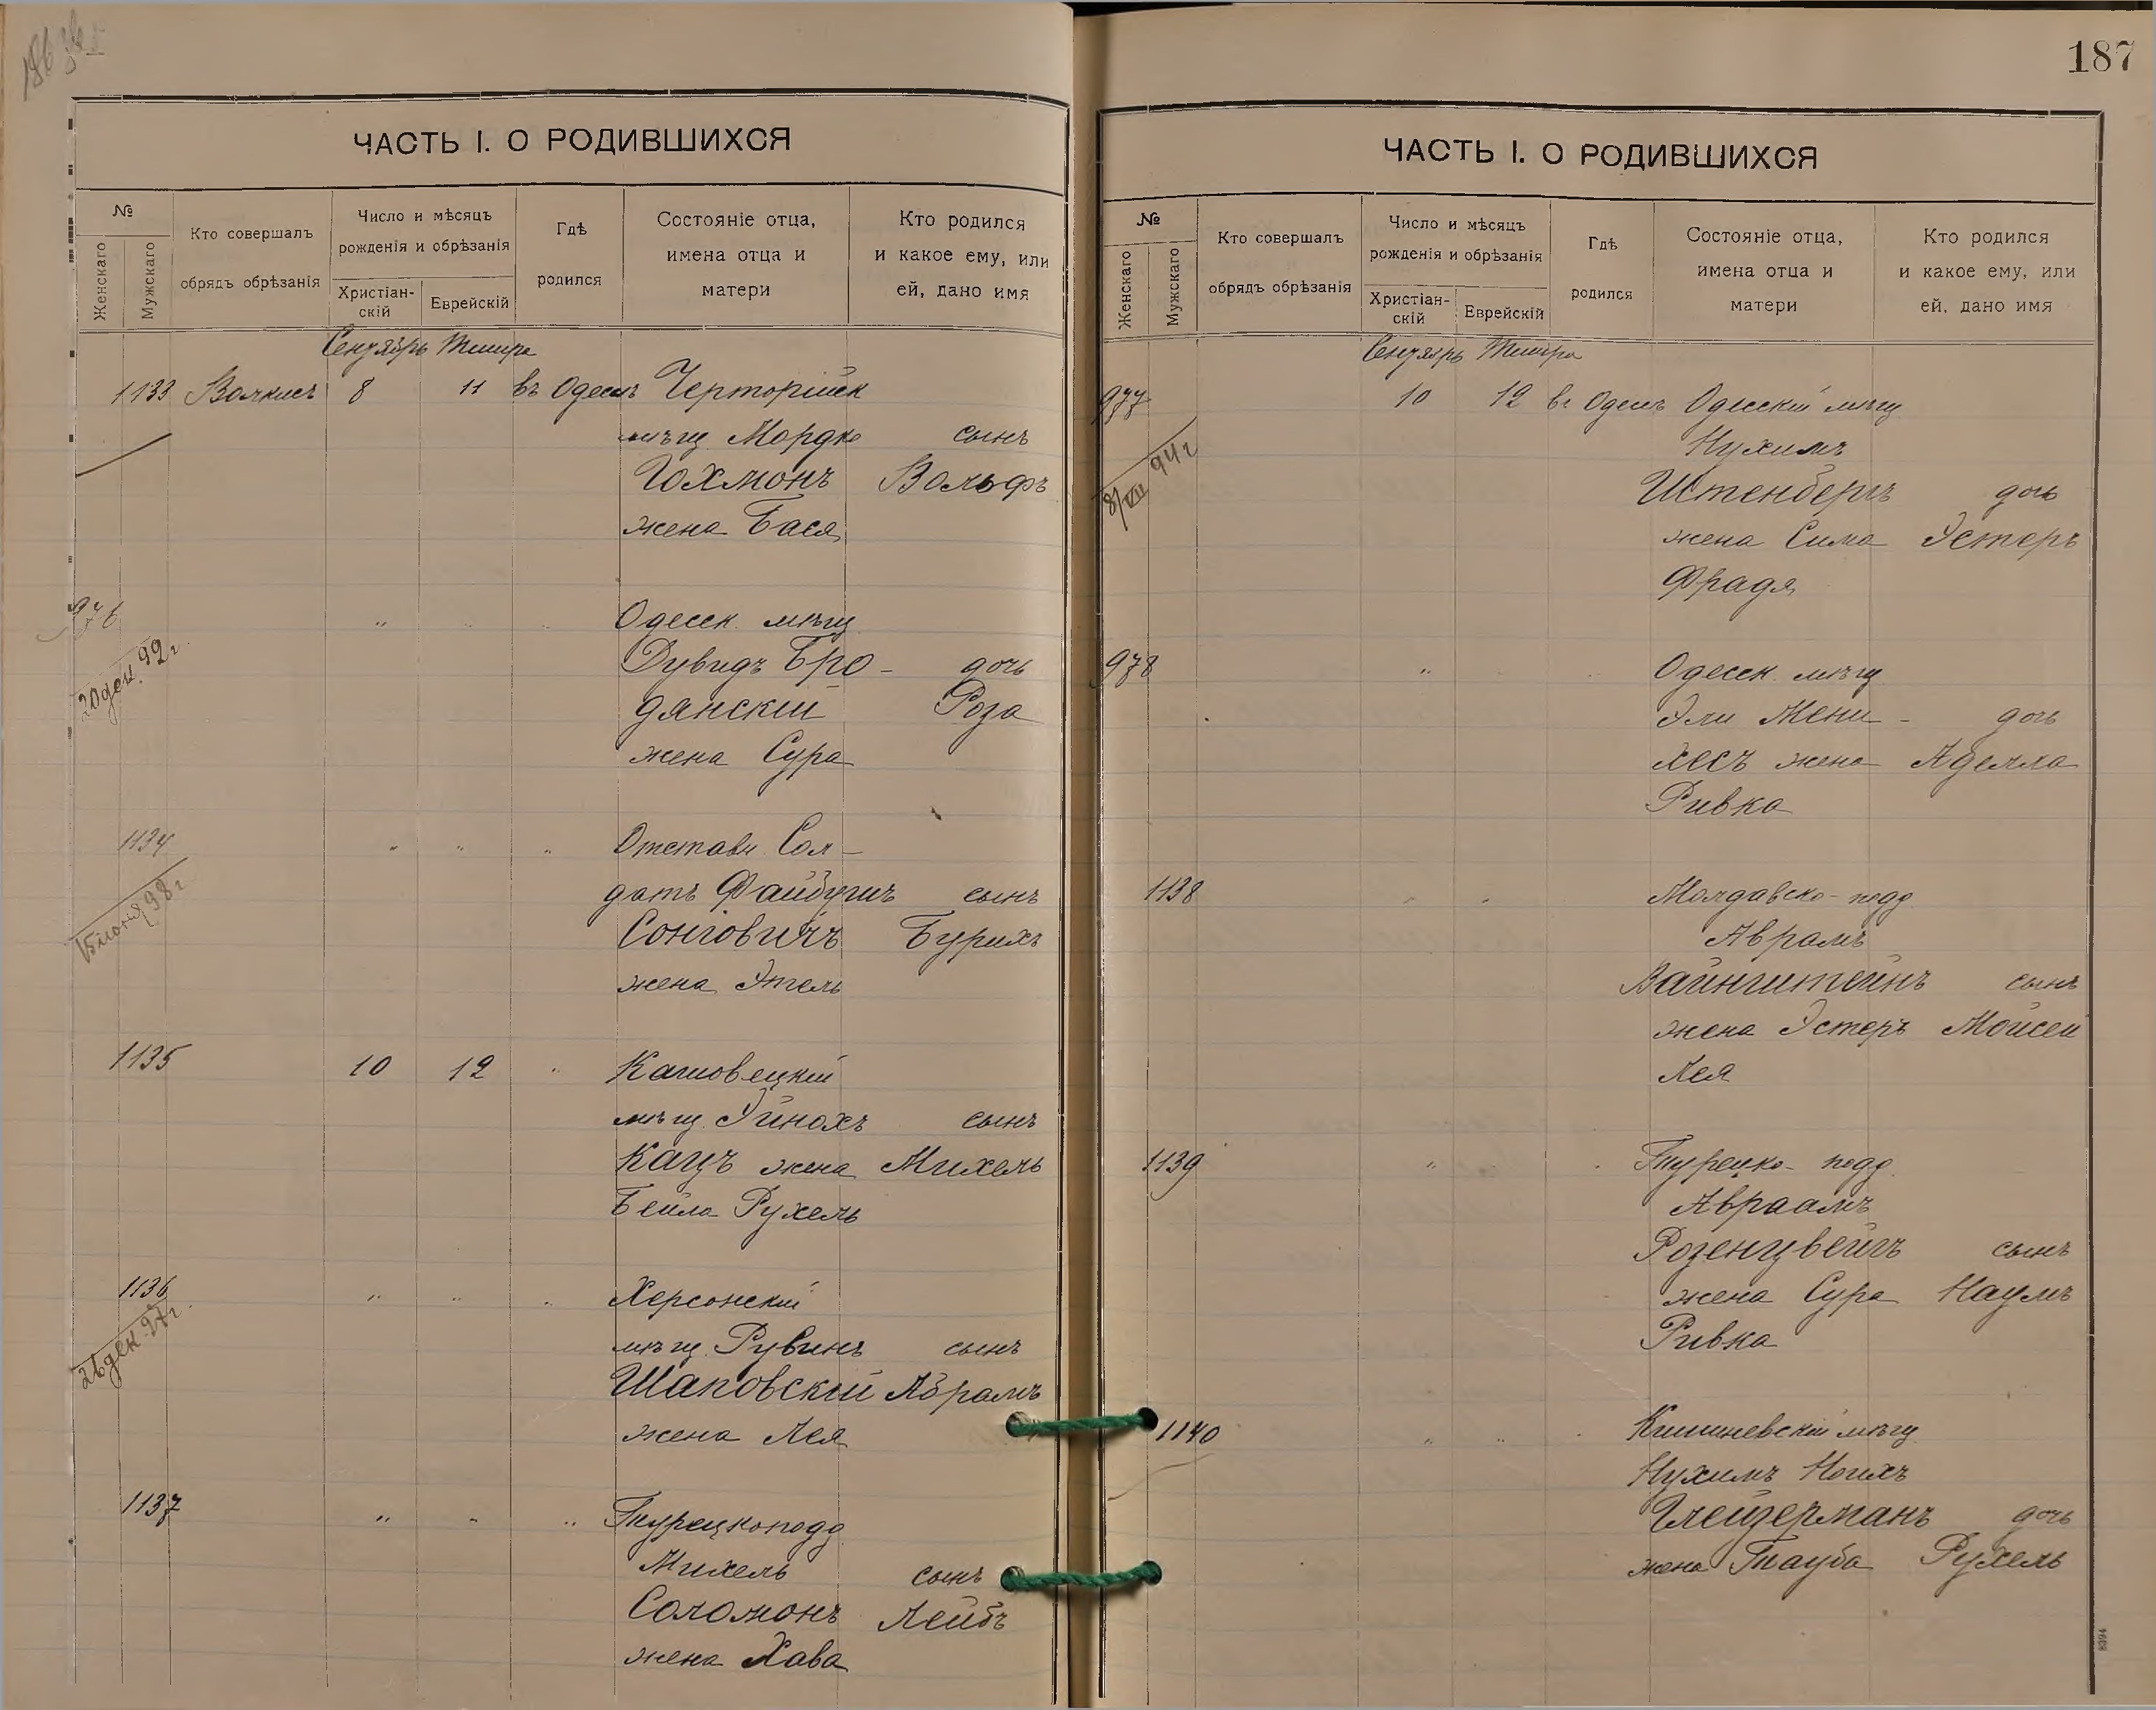 ЧАСТЬ I. О РОДИВШИХСЯ
№
Женскаго
Мужскаго
Кто совершалъ
обрядъ обрѣзанія
Число и мѣсяцъ
рожденія и обрѣзанія
Христіан-
скій
Еврейскій
Гдѣ
родился
Состояніе отца,
имена отца и
матери
Кто родился
и какое ему, или
ей, дано имя
Сентябрь Тишре
1133 8 11 въ Одессѣ Черторійск
мѣщ. Мордко сынъ
Гохманъ Вольфъ
жена Бася
976 " " " Одесск. мѣщ.
20 дек. 92 г.
Дувидъ Бро- дочь
дянскій Роза
жена Сура
1134 " " " Отставн. Сол-
15 іюня 98 г.
датъ сынъ
Бурихъ
жена Этель
1135 10 12 "
мѣщ. Эйнохъ сынъ
Кацъ жена Михель
Бейла Рухель
1136 " " " Херсонскій
26 дек. 97 г.
мѣщ. Рувинъ сынъ
Шаповскій Абрамъ
жена Лея
1137 " " " Турецкоподд.
Михель сынъ
Соломонъ Лейбъ
жена Хава
187
ЧАСТЬ I. О РОДИВШИХСЯ
№
Женскаго
Мужскаго
Кто совершалъ
обрядъ обрѣзанія
Число и мѣсяцъ
рожденія и обрѣзанія
Христіан-
скій
Еврейскій
Гдѣ
родился
Состояніе отца,
имена отца и
матери
Кто родился
и какое ему, или
ей, дано имя
Сентябрь Тишре
977 10 12 въ Одессѣ Одесскій мѣщ.
8/VII 94 г
Нухимъ
Штенбергъ дочь
жена Сима Эстеръ
Фрадя
978 " Одесск. мѣщ.
Эли Мени- дочь
хесъ жена Аделла
Ривка
1138 " " Молдавско-подд.
Аврамъ
Вайнштейнъ сынъ
жена Эстеръ Мойсей
Лея
1139 " " Турецко-подд.
Авраамъ
Розенцвейгъ сынъ
жена Сура Наумъ
Ривка
1140 " " Кишиневскій мѣщ.
Нухимъ Ноихъ
Глейзерманъ дочь
жена Тауба Рухель
8394